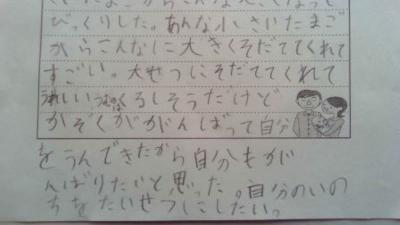 びっくりした。あんな小さいたまご
からこんなに大きくそだててくれて
すごい。大せつにそだててくれて
うれしい
くるしそうだけど
かぞくががんばって自分
をうんできたから自分もが
んばりたいと思った。自分のいの
ちをたいせつにしたい。